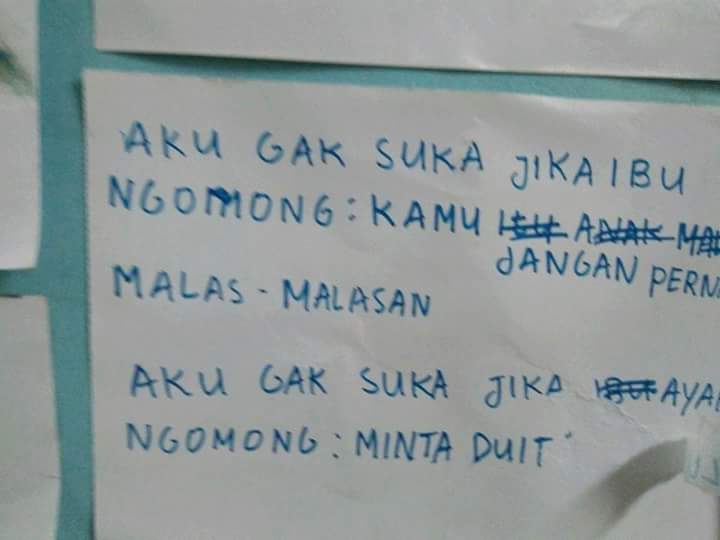 AKU GAK SUKA JIKA IBU
NGOMONG : KAMU
JANGAN
MALAS - MALASAN
AKU GAK SUKA JIKA
NGOMONG : MINTA DUIT